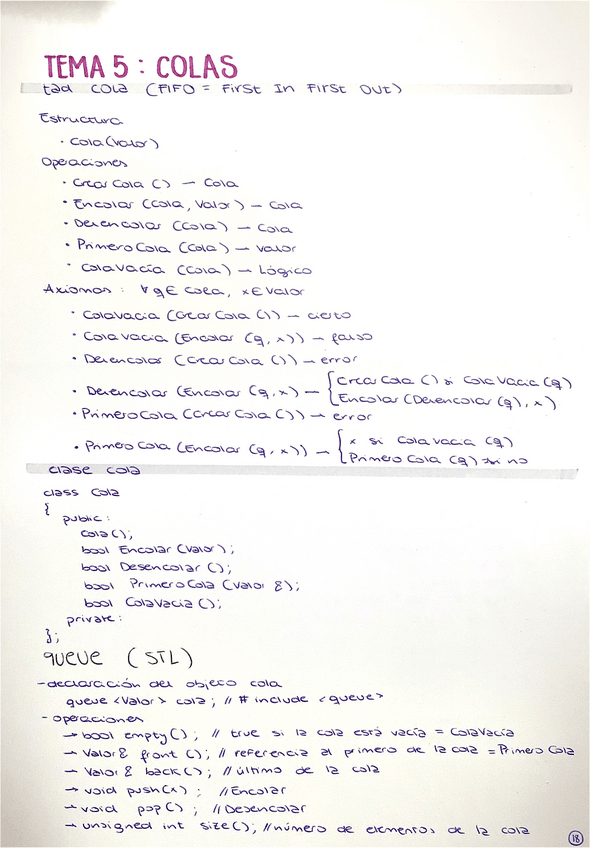 TEMA 5 : COLAS
tad cola (FIFO = First In First Out)
Estructura
• Cola(valor)
Operaciones
• Crear Cola () → Cola
• Encolar (Cola, Valor) → Cola
• Desencolar (Cola) → Cola
• Primero Cola (Cola) → valor
• ColaVacía (Cola) → Lógico
Axiomas : ∀ q ∈ Cola, x ∈ Valor
• ColaVacia (Crear Cola ()) → cierto
• Cola Vacia (Encolar (q, x)) → falso
• Desencolar (Crear Cola ()) → error
• Desencolar (Encolar (q, x) → { Crear Cola () si Cola Vacia (q)
Encolar (Desencolar (q), x)
• Primero Cola (Crear Cola ()) → error
• Primero Cola (Encolar (q, x)) → { x si Cola vacia (q)
Primero Cola (q) si no
clase cola
class Cola
{
public :
Cola ();
bool Encolar (Valor);
bool Desencolar ();
bool Primero Cola (Valor &);
bool Cola Vacia ();
private:
};
queue (STL)
- declaración del objeto cola
queue <Valor> cola ; // # include <queue>
- operaciones
→ bool empty () ; // true si la cola está vacía = ColaVacía
→ Valor & front () ; // referencia al primero de la cola = Primero Cola
→ Valor & back () ; // último de la cola
→ void push (x) ; // Encolar
→ void pop () ; // Desencolar
→ unsigned int size () ; // número de elementos de la cola
18